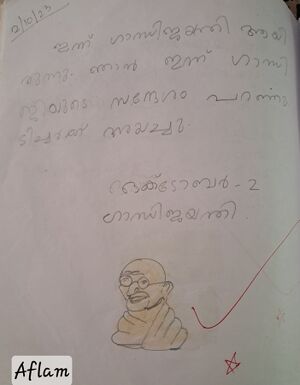 2/10/23
ഇന്ന് ഗാന്ധിജയന്തി ആയി
രുന്നു. ഞാൻ ഇന്ന് ഗാന്ധി
ജിയുടെ സന്ദേശം പറഞ്ഞു
ടീച്ചർക്ക് അയച്ചു.
ഒക്ടോബർ - 2
ഗാന്ധിജയന്തി.
Aflam